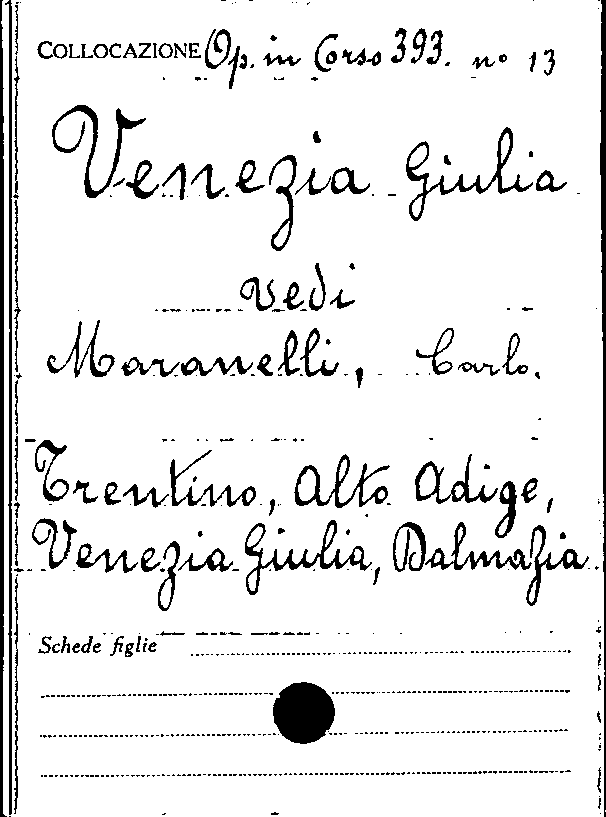 COLLOCAZIONE Op. in Corso 393. n° 13
Venezia Giulia
vedi
Maranelli, Carlo.
Trentino, Alto Adige,
Venezia Giulia, Dalmazia
Schede figlie